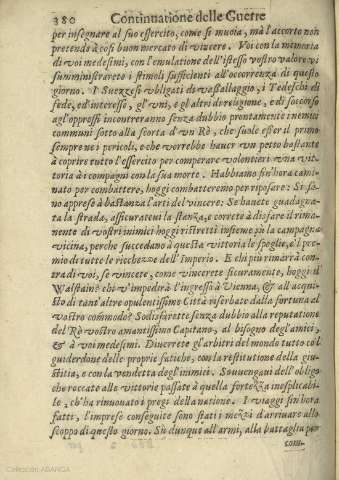 380 Continuatione delle Guerre
per insegnare al suo essercito, come si muoia, mà l'accorto non
pretende à così buon mercato di vincere. Voi con la memoria
di voi medesimi, con l'emulatione dell'istesso vostro valore vi
sumministrarete i stimoli sufficienti all'occorrenza di questo
giorno. I Suezzesi obligati da vassallaggio, i Tedeschi di
fede, ed'interesse, gl'vni, e gl'altri di religione, e di soccorso
agl'oppressi incontreranno senza dubbio prontamente i nemici
communi sotto alla scorta d'vn Rè, che suole esser il primo
sempre ne i pericoli, e che vorrebbe hauer vn petto bastante
à coprire tutto l'essercito per comperare volontieri vna vit-
toria à i compagni con la sua morte. Habbiamo fin'hora cami-
nato per combattere, hoggi combatteremo per riposare: Si so-
no apprese à bastanza l'arti del vincere: Se hauete guadagna-
ta la strada, assicurateui la stanza, e correte à disfare il rima-
nente di vostri inimici hoggi ristretti insieme in la campagna
vicina, perche succedano à questa vittoria le spoglie, e'l pre-
mio di tutte le ricchezze dell'Imperio. E chi più rimarrà con-
tra di voi, se vincete, come vincerete sicuramente, hoggi il
Walstain? chi v'impedirà l'ingresso à Vienna, & all'acqui-
sto di tant'altre opulentissime Città riserbate dalla fortuna al
vostro commodo? Sodisfarete senza dubbio alla reputatione
del Rè vostro amantissimo Capitano, al bisogno degl'amici,
& à voi medesimi. Diuerrete gl'arbitri del mondo tutto co'l
guiderdone delle proprie fatiche, con la restitutione della giu-
stitia, e con la vendetta degl'inimici. Souuengaui dell'obligo
che roccato alle vittorie passate à quella fortezza inesplicabi-
le, ch'ha rinouato i pregi della natione. I viaggi sin hora
fatti, l'imprese conseguite sono stati i mezzi d'arriuare allo
scoppo di questo giorno. Sù dunque all'armi, alla battaglia per
com-
Colección ABANCA